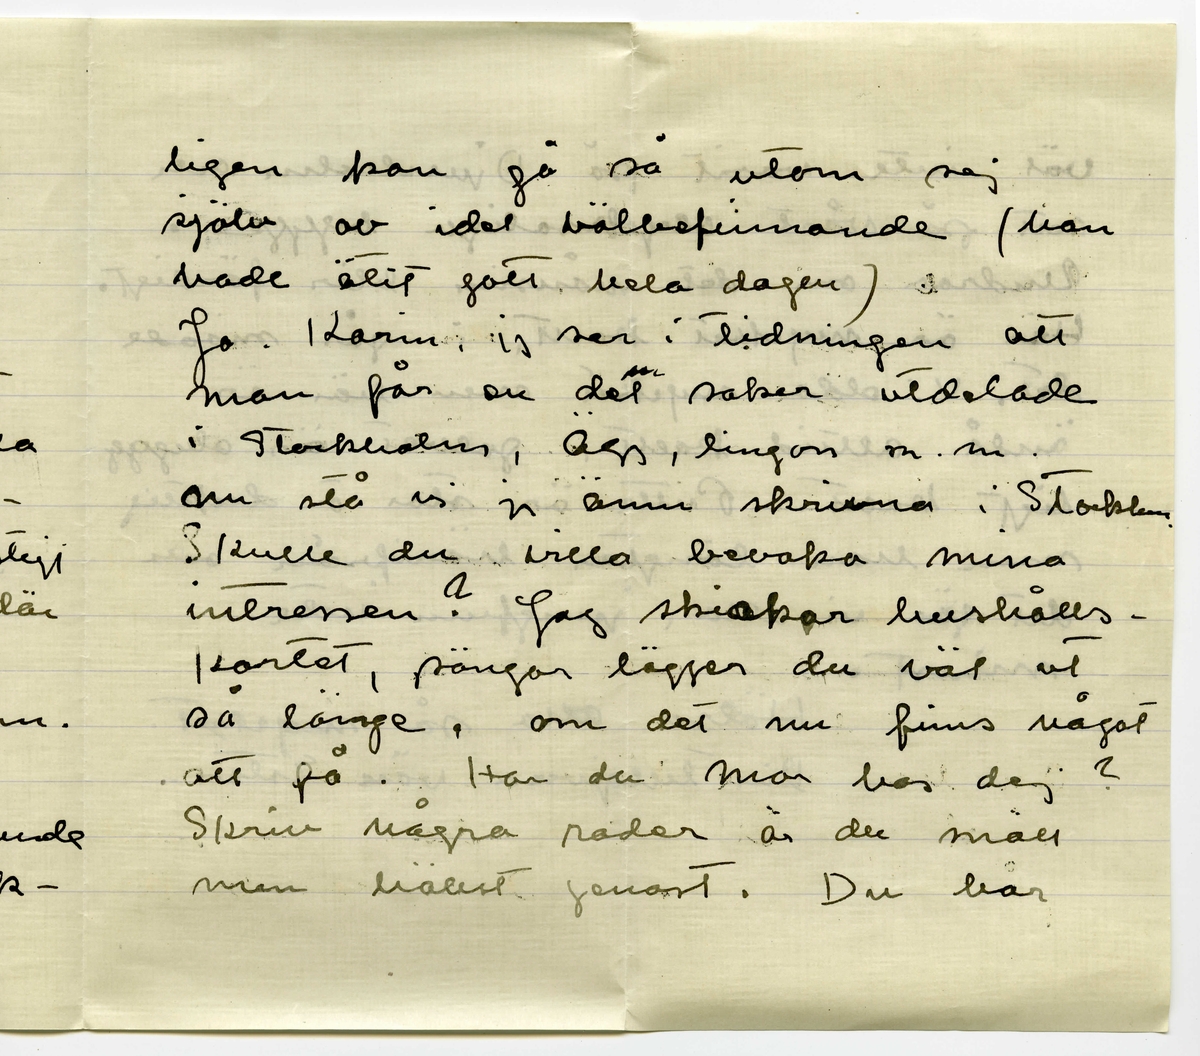 ligen kan gå så utom sej
själv av idel välbefinnande (han
hade ätit gott hela dagen)
Ja. Karin, jg ser i tidningen att
man får en del saker utdelade
i Stockholm, ägg, lingon m. m.
nu stå vi ju ännu skrivna i Stockhm.
Skulle du villa bevaka mina
intressen? Jag skickar hushålls-
kortet, pängar lägger du väl ut
så länge, om det nu finns något
att få. Har du Mor hos dej?
Skriv några rader är du snäll
men hälst genast. Du har